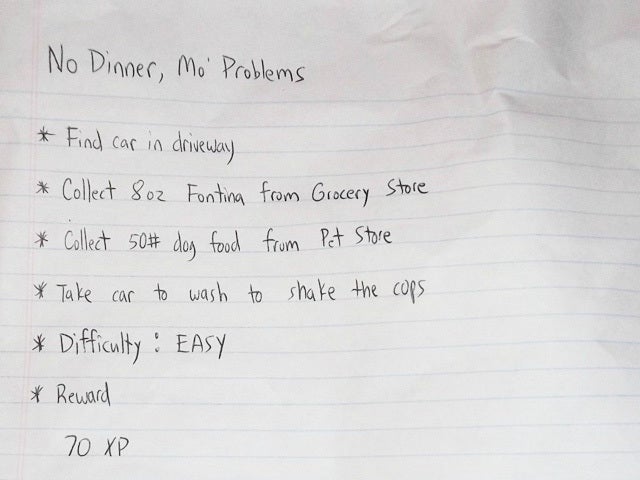 No Dinner, Mo' Problems
* Find car in driveway
* Collect 8oz Fontina from Grocery Store
* Collect 50# dog food from Pet Store
* Take car to wash to shake the cops
* Difficulty: EASY
* Reward
70 XP